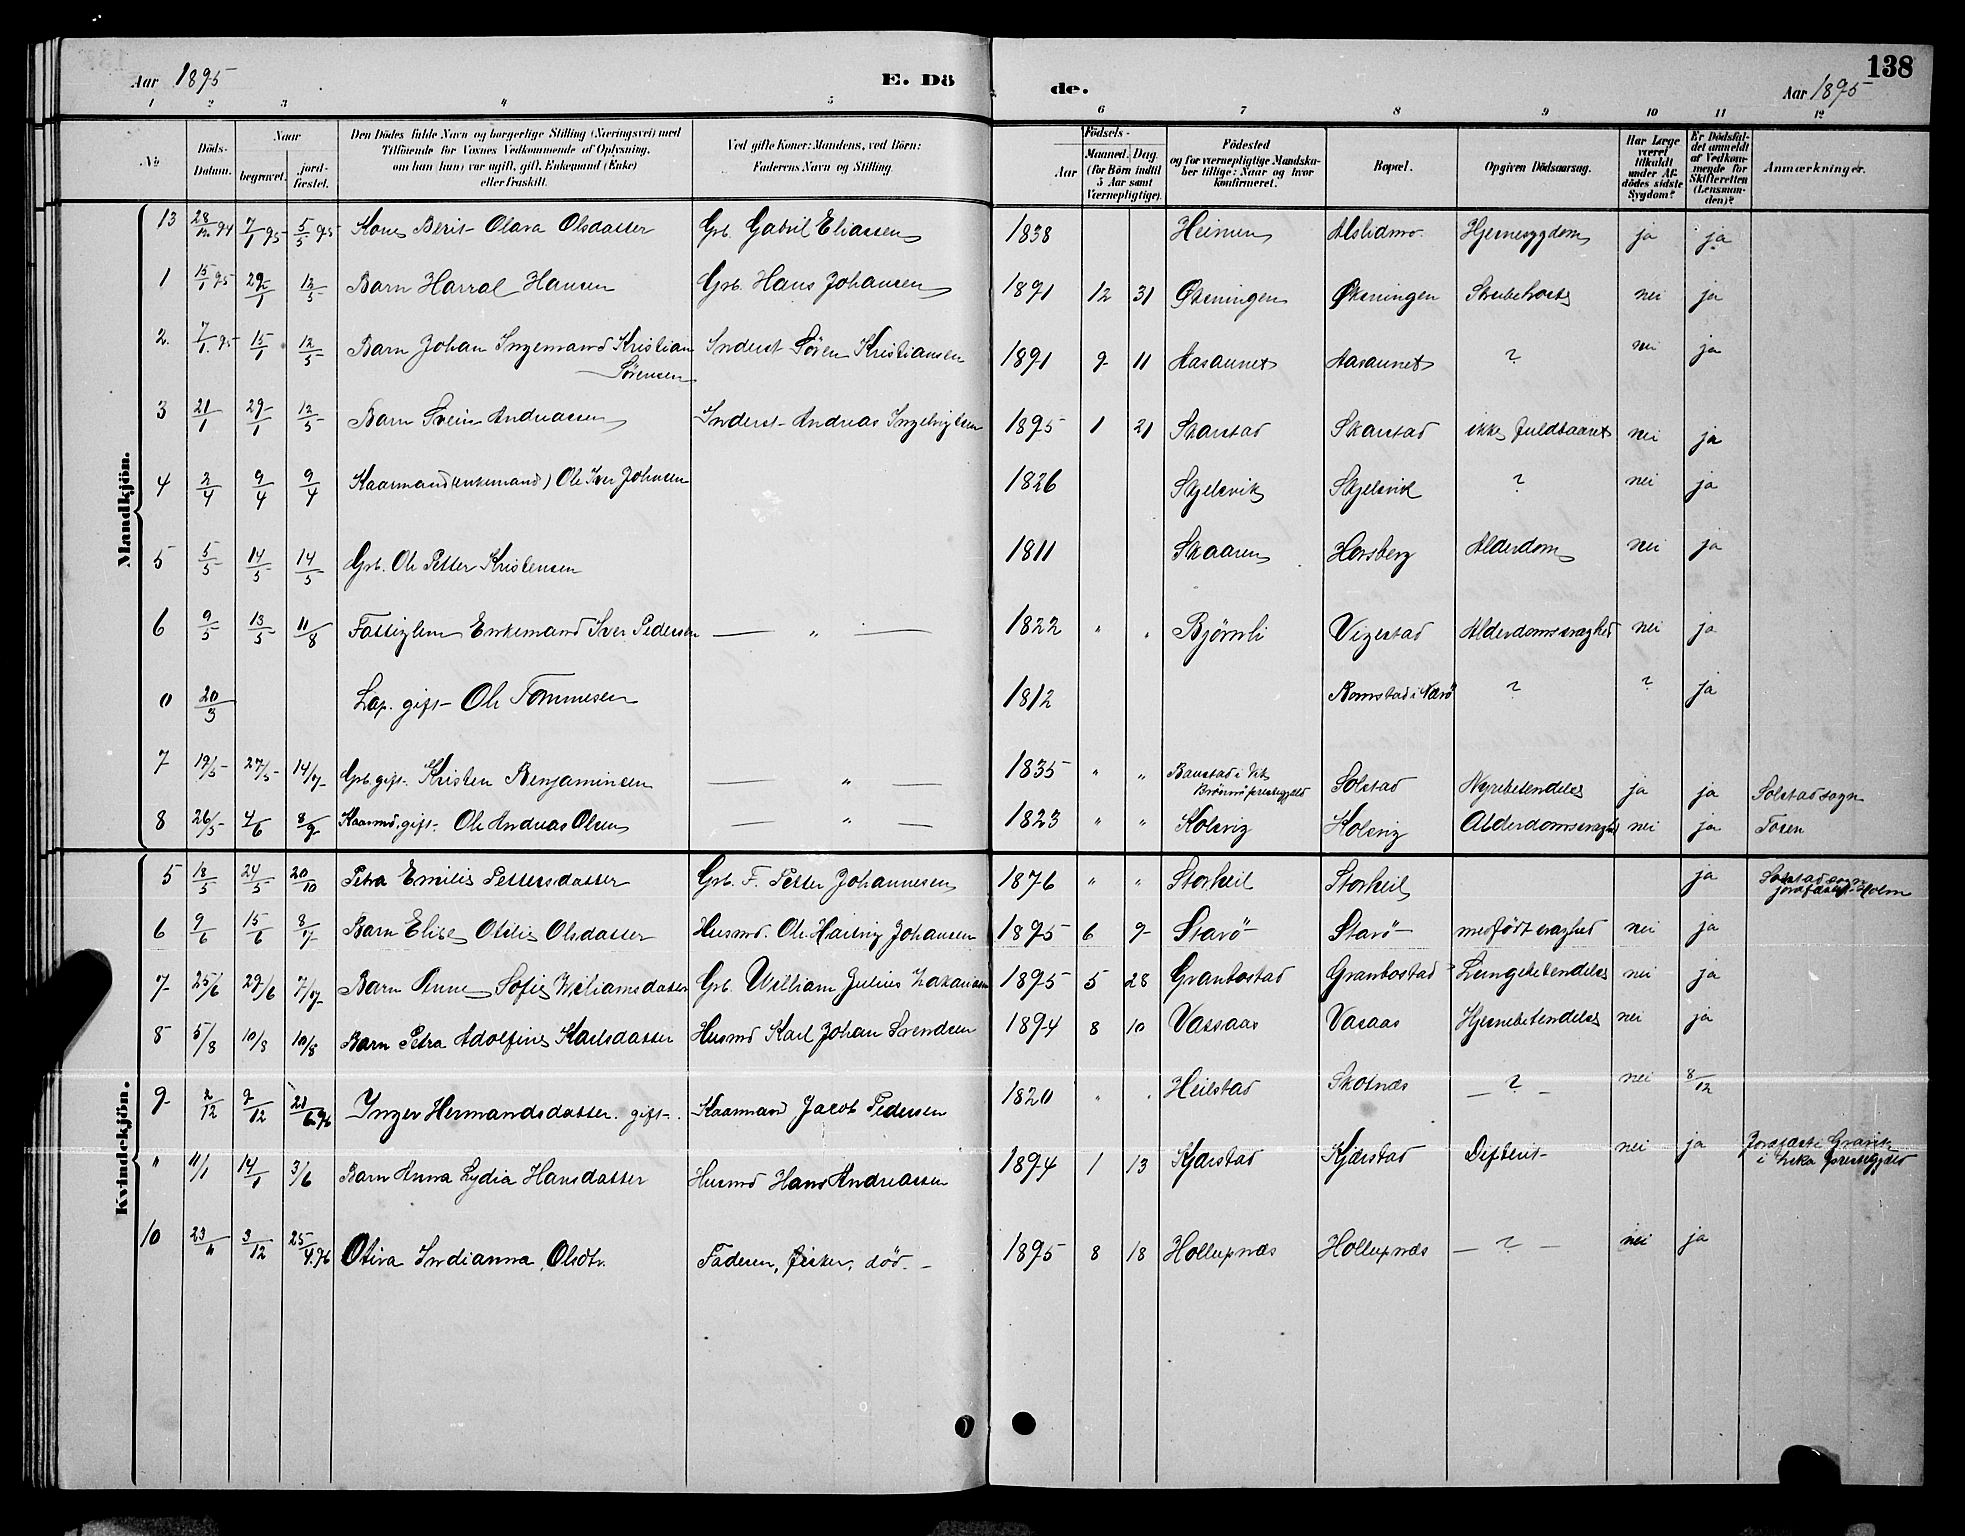 138
Aar 1895 E. Dö de. Aar 1895
1 2 3 4 5 6 7 8 9 10 11 12
No
Döds-Datum.
Naar
begravet.
jord-fæstet.
Den Dödes fulde Navn og borgerlige Stilling (Næringsvei) med
Tilföiende for Voxnes Vedkommende af Oplysning,
om han (hun) var ugift, gift, Enkemand (Enke)
eller fraskilt.
Ved gifte Koner: Mandens, ved Börn:
Faderens Navn og Stilling.
Födsels-
Aar
Maaned. Dag.
(for Börn indtil
5 Aar samt
Værnepligtige)
Födested
og for værnepligtige Mandska-
ber tillige: Naar og hvor
konfirmeret.
Bopæl.
Opgiven Dödsaarsag.
Har Læge
været
tilkaldt
under Af-
dödes sidste
Sygdom?
Er Dödsfal-
det anmeldt
af Vedkom-
mende for
Skifteretten
(Lensman-
den)?
Anmærkninger.
Mandkjön.
13 28/12 94 7/1 95 5/5 95 Kone Berit Olava Olsdatter Grb. Gabril Eliassen 1838 Heimen Hjernesygdom ja ja
1 15/1 95 29/1 12/5 Barn Harral Hansen Grb. Hans Johansen 1891 12 31 Øksningen Øksningen Strubehoste nei ja
2. 7/1 95 15/1 12/5 Barn Johan Ingemand Kristian Inderst Sören Kristiansen 1891 9 11 Aasaunet Aasaunet ? nei ja
Sörensen
3 21/1 29/1 12/5 Barn Svein Andreassen Inderst Andreas 1895 1 21 Skarstad Skarstad ikke fuldbaaret nei ja
4 2/4 9/4 9/4 Kaarmand (enkemand) Ole Iver Johnsen 1826 Skjelsvik Skjelsvik ? nei ja
5 5/5 14/5 14/5 Grb. Ole Petter Kristensen 1811 Skaaren Horsberg Alderdom nei ja
6 9/5 13/5 11/8 Fattiglem Enkemand Iver Pedersen — " — 1822 " " Björnli Vigestad Alderdomssvaghed nei ja
0 20/3 Lap. gift Ole Tommesen 1812 Romstad i Nærö ? ? ja
7 19/5 27/5 14/7 Grb. gift. Kristen Benjaminsen — " — 1835 " " Baustad i Vik Solstad Nyrebetendelse ja ja Solstad sogn
Brönnö præstegjeld
8 26/5 4/6 8/9 Kaarmd. gift. Ole Andreas Olsen — " — 1823 " " Kolsvig Kolsvig Alderdomssvaghed nei ja Tosen
Kvindekjön.
5 18/5 24/5 20/10 Petra Emilie Pettersdatter Grb. F. Petter Johannesen 1876 " " Storheil Storheil ja Solstad sogn
jordfæstet Holm
6 9/6 15/6 8/7 Barn Elise Otilie Olsdatter Husmd. Ole Hartvig Johansen 1895 6 9 Starö Starö medfödt svaghed nei ja
7 25/6 29/6 7/7 Barn Anne Sofie Wiliamsdatter Grb. William Julius Zakariasen 1895 5 28 Granbostad Granbostad Lungebetendelse nei ja
8 5/8 10/8 10/8 Barn Petra Adolfine Karlsdatter Husmd Karl Johan Svendsen 1894 8 10 Vassaas Vasaas Hjernebetendelse nei ja
9 2/12 9/12 21/6 96 Inger Hermandsdatter. gift. Kaarmand Jacob Pedersen 1820 " " Heilstad Skotnæs — ? — nei 8/12
" 11/1 14/1 3/6 Barn Anna Lydia Hansdatter Husmd Hans Andreassen 1894 1 13 Kjærstad Kjærstad Difterit nei ja Jordfæstet
i Leka præstegjeld
10 23/11 3/12 25/4 96 Otira Indianna, Olsdtr. Faderen, fisker, död. — 1895 8 18 Hollupnæs Hollupnæs — ? — nei ja